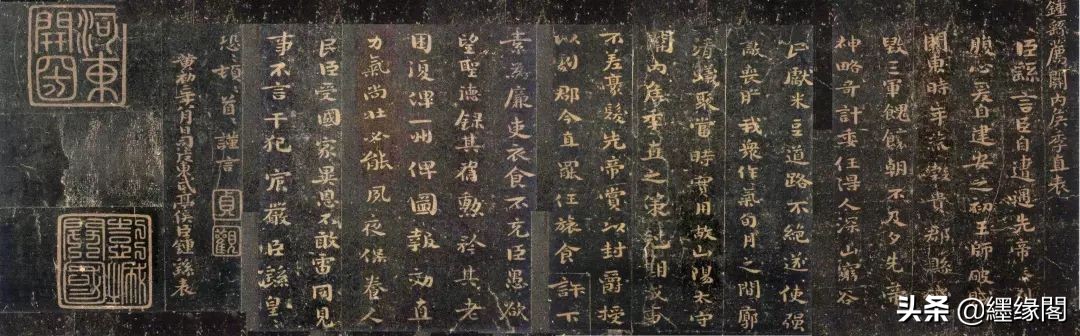 鍾繇薦關内侯季直表
臣繇言臣自遭遇先帝忝列
腹心爰自建安之初王師破賊
關東時年荒穀貴郡縣殘
毀三軍餽餉朝不及夕先帝
神略奇計委任得人深山窮谷
民獻米豆道路不絶遂使强
敵喪膽我衆作氣旬月之間廓
清蟻聚當時實用故山陽太守
關内侯季直之策剋期成事
不差豪髮先帝賞以封爵授
以劇郡今直罷任旅食許下
素為廉吏衣食不充臣愚欲
望聖德録其舊勳矜其老
困復俾一州俾圖報効直
力氣尚壯必能夙夜保養人
民臣受國家異恩不敢雷同見
事不言干犯宸嚴臣繇皇
恐頓首謹言
貞觀
黃初二年八月日司徒東武亭侯臣鍾繇表
河東
头条 @纆缘閣